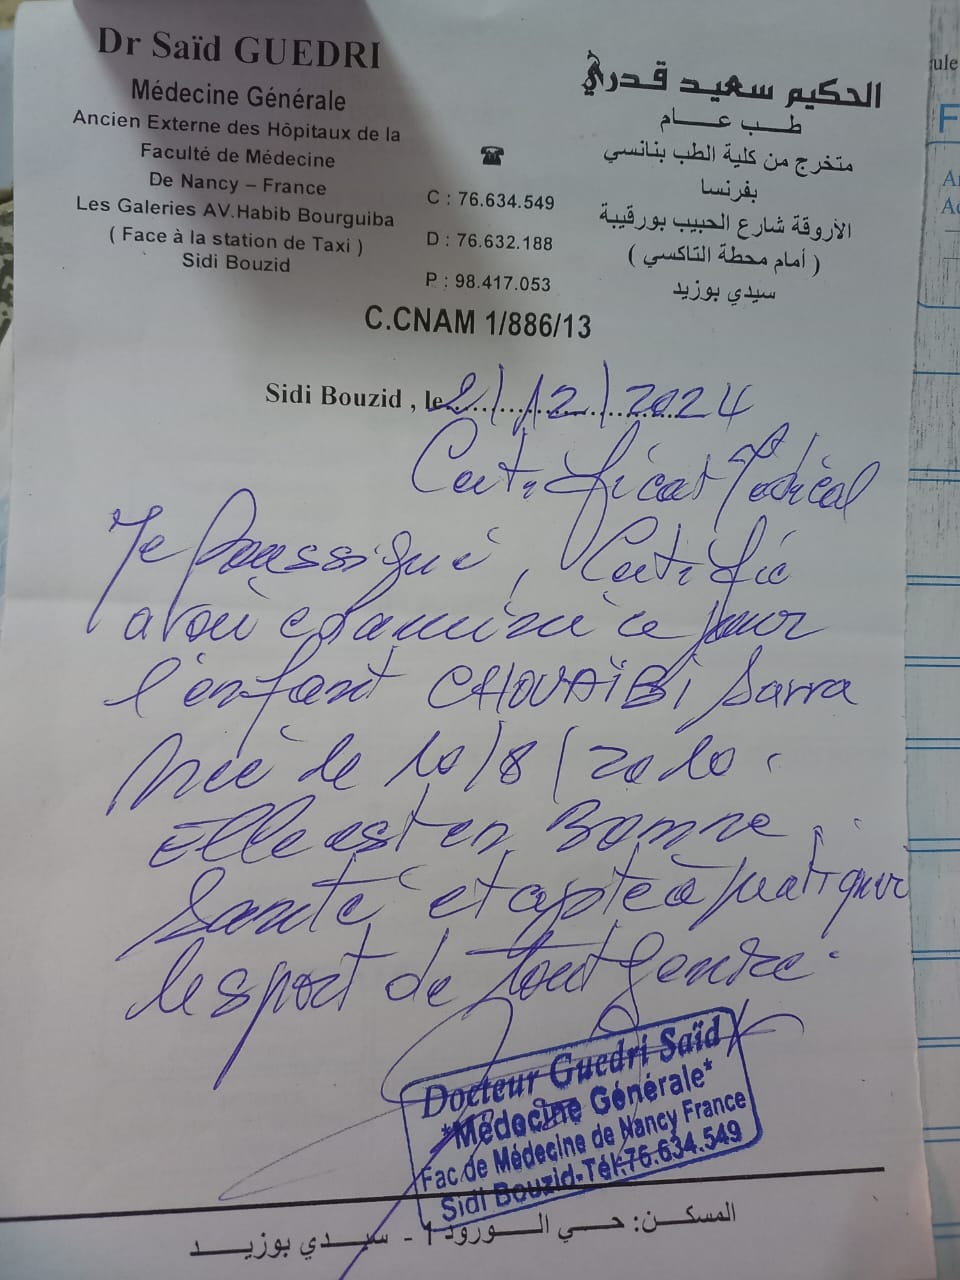 Dr Saïd GUEDRI
Médecine Générale
Ancien Externe des Hôpitaux de la
Faculté de Médecine
De Nancy – France
Les Galeries AV.Habib Bourguiba
( Face à la station de Taxi )
Sidi Bouzid
C : 76.634.549
D : 76.632.188
P : 98.417.053
الحكيم سعيد قدري
طب عام
متخرج من كلية الطب بنانسي
بفرنسا
الأروقة شارع الحبيب بورقيبة
( أمام محطة التاكسي )
سيدي بوزيد
C.CNAM 1/886/13
Sidi Bouzid , le 2/12/2024
Certificat Médical
Je soussigné, Certifie
avoir examiné ce jour
l'enfant CHOUAÏBI Sarra
Née le 10/8/2010.
Elle est en Bonne
Santé et apte à pratiquer
le sport de tout genre.
Docteur Guedri Saïd
*Médecine Générale*
Fac.de Médecine de Nancy France
Sidi Bouzid-Tél:76.634.549
المسكن: حي الورود 1 - سيدي بوزيد